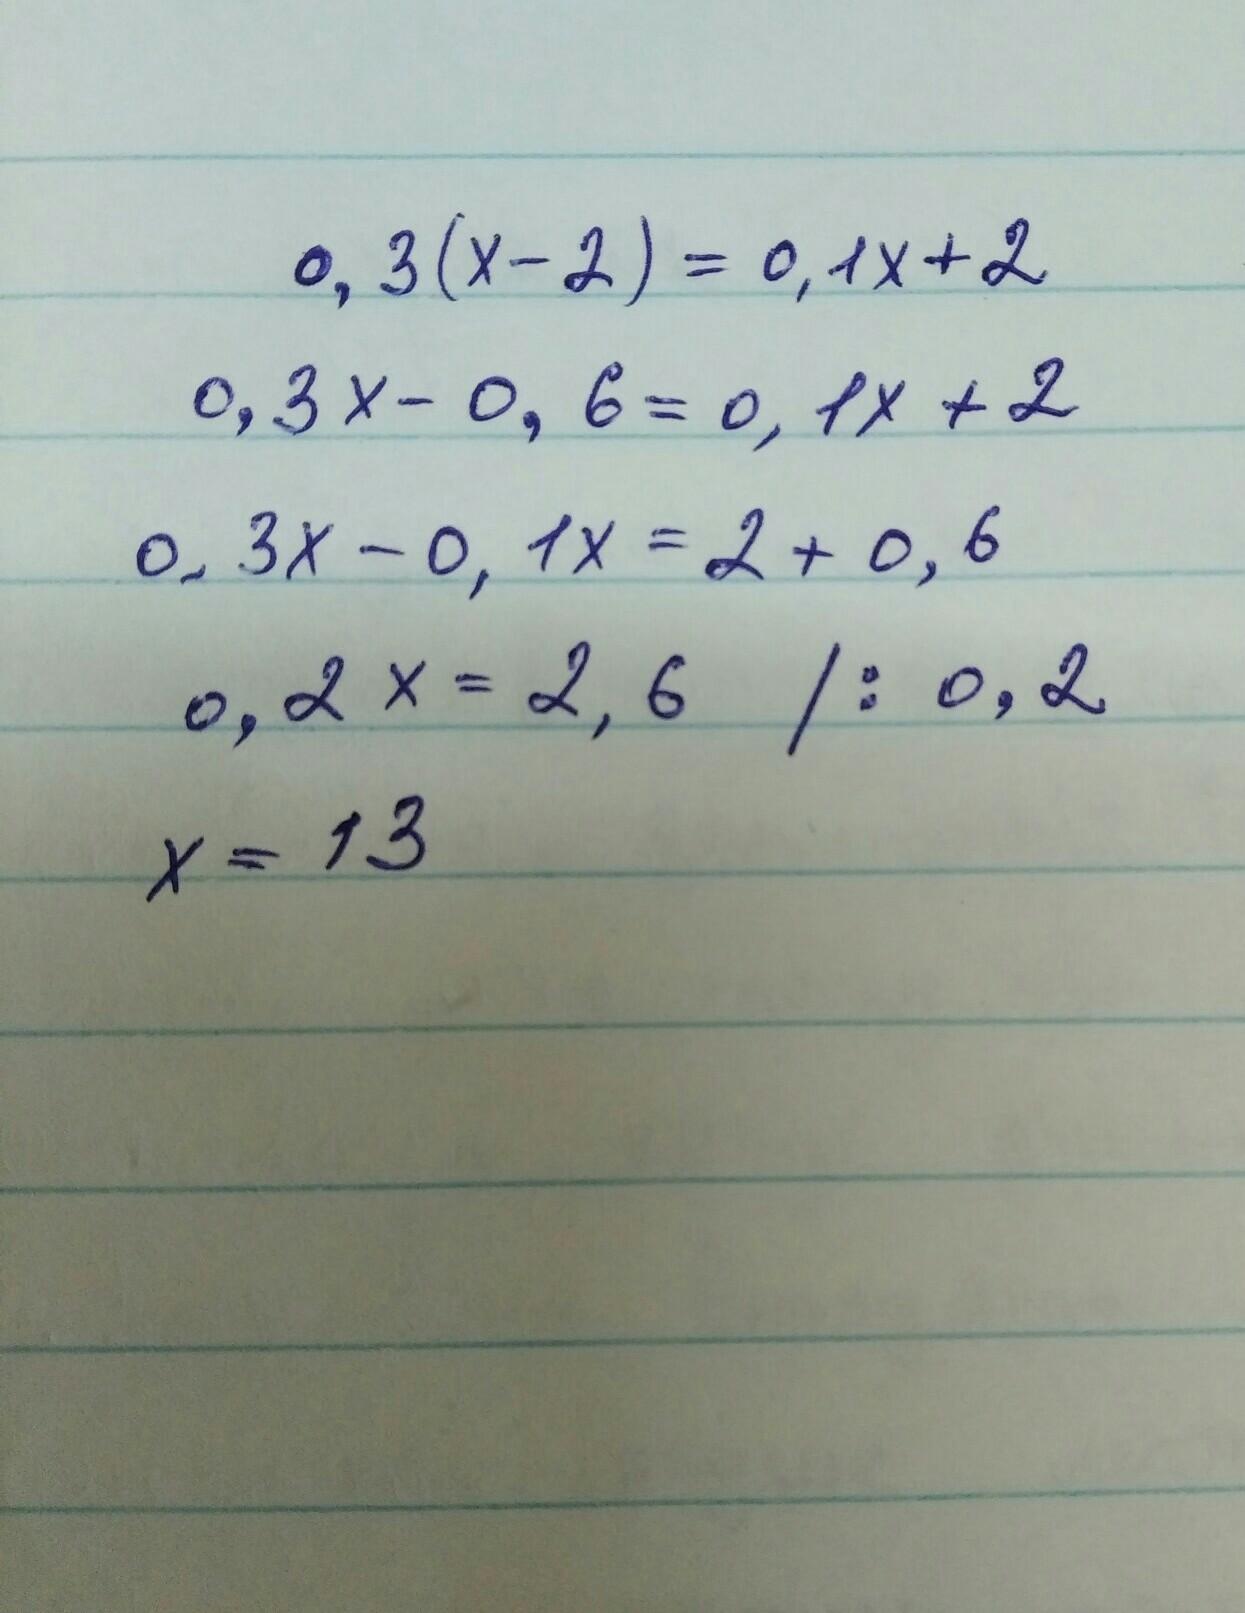 0,3(x-2)=0,1x+2
0,3x-0,6=0,1x+2
0,3x-0,1x=2+0,6
0,2x=2,6 /:0,2
x=13